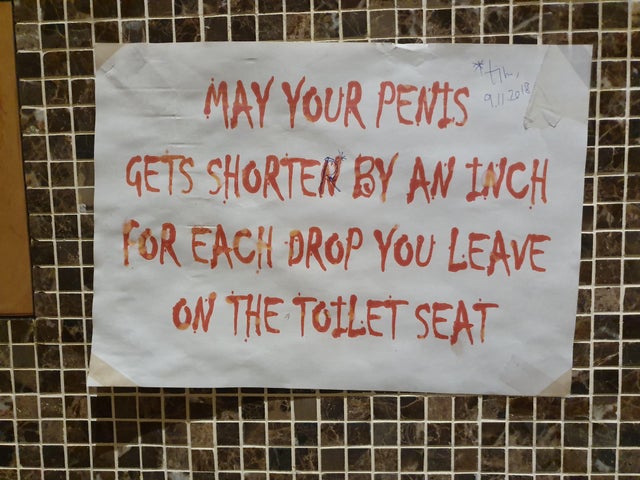 MAY YOUR PENIS
GETS SHORTER BY AN INCH
FOR EACH DROP YOU LEAVE
ON THE TOILET SEAT
9.11.2018